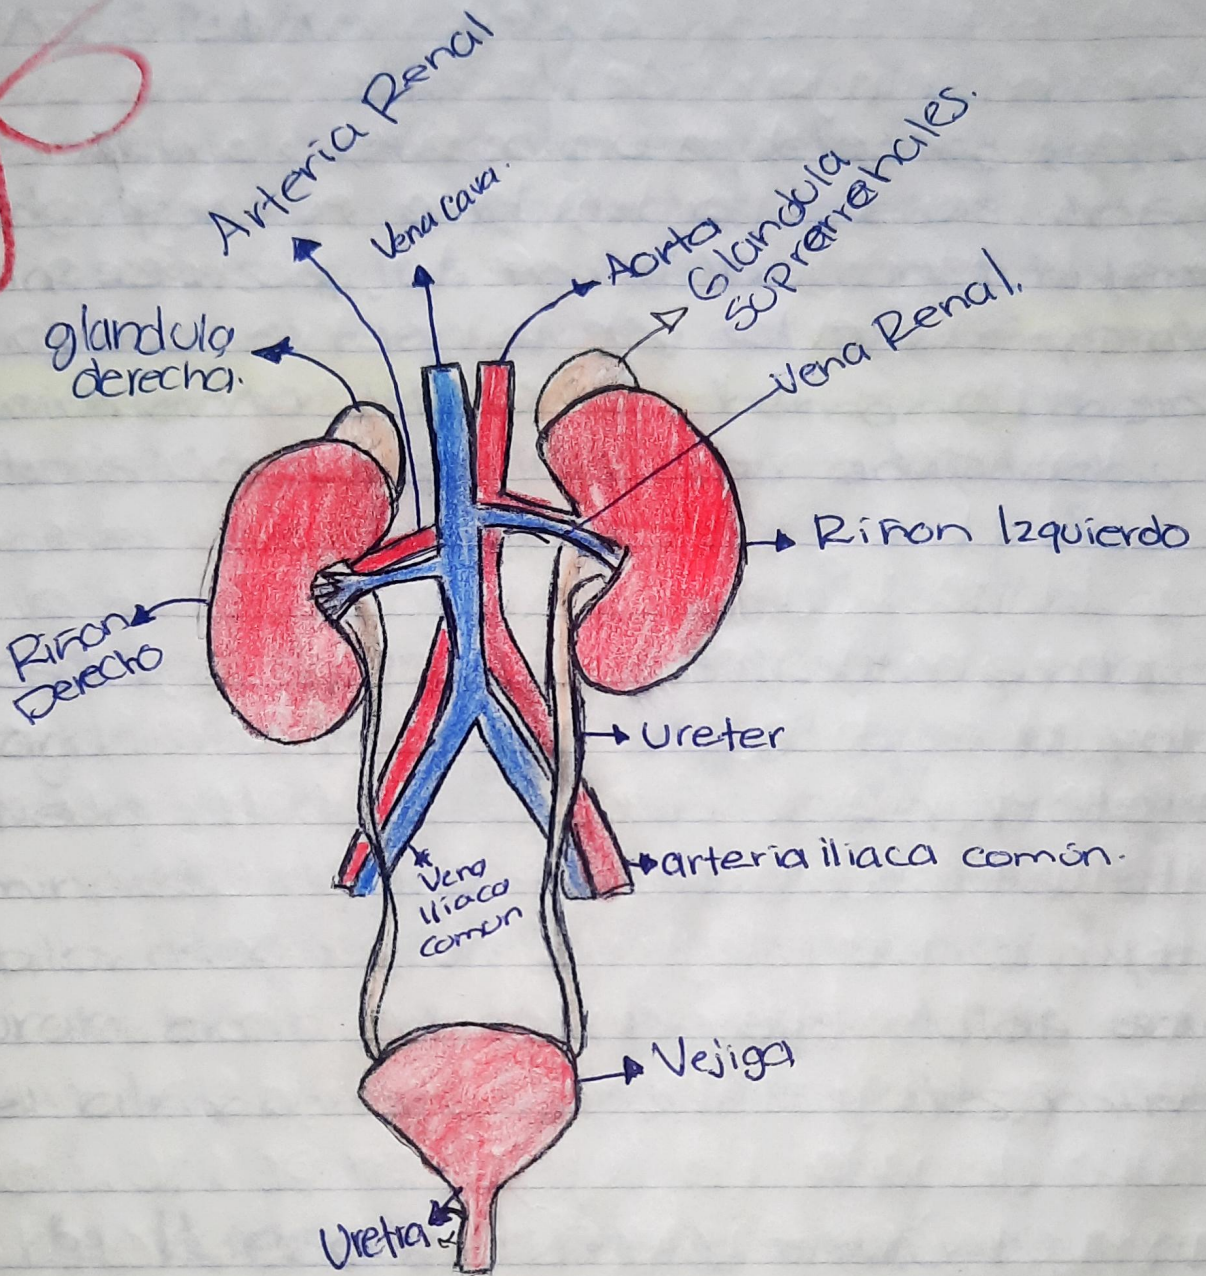 Arteria Renal
Vena Cava.
Aorta
Glandula
suprarrenales.
glandula
derecha.
Vena Renal.
Riñon Izquierdo
Riñon
Derecho
Ureter
arteria iliaca común.
Vena
iliaca
comun
Vejiga
Uretra